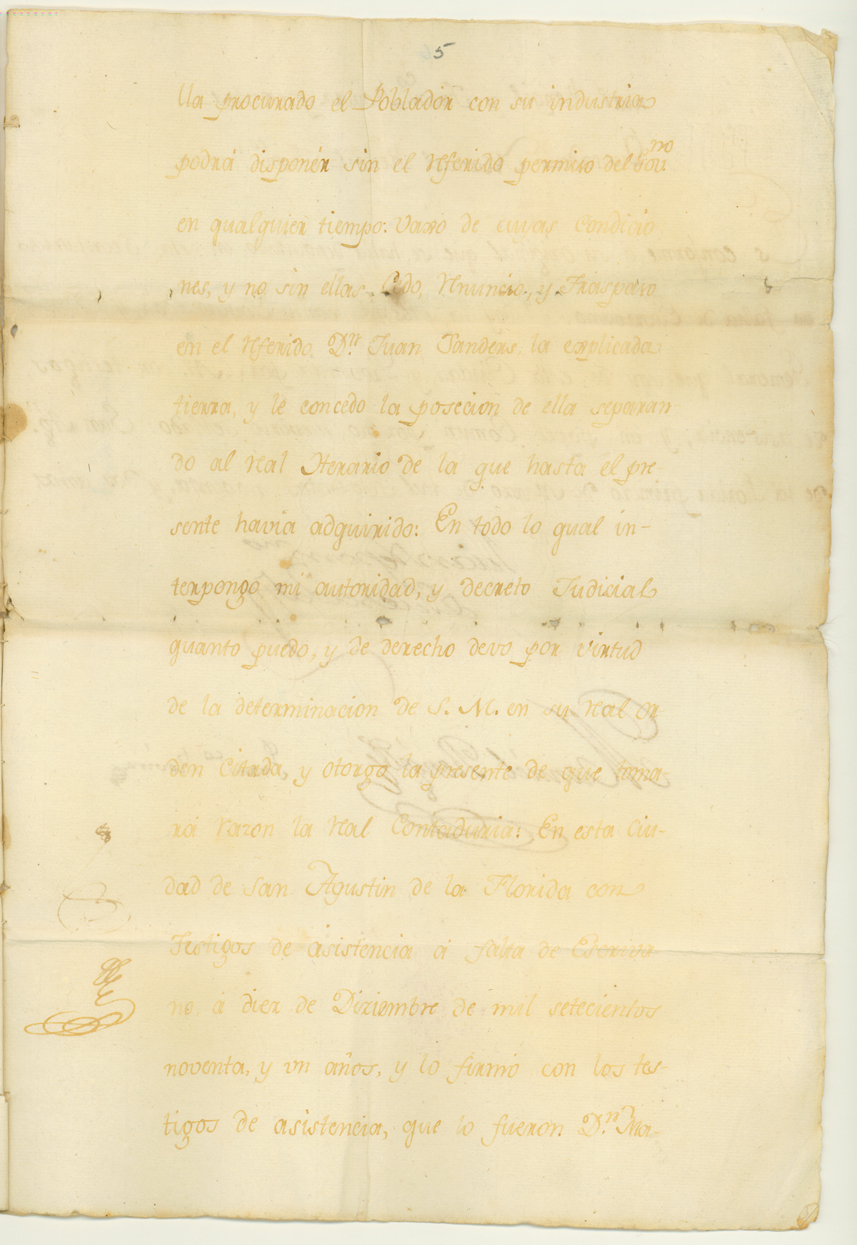 5
Ua procurado el Poblador con su industria
podrá disponér sin el referido permiso del Gouno
en qualquier tiempo. Vaxo de cuias Condicio
nes, y no sin ellas, Cedo, renuncio, y Traspaso
en el referido, Dn Juan Sanders, la explicada
tierra, y le concedo la posecion de ella separan-
do al real Herario de la que hasta el pre-
sente havia adquirido: En todo lo qual in-
terpongo mi autoridad, y decreto Judicial
quanto puedo, y de derecho devo por virtud
de la determinacion de S. M. en su real or
den Citada, y otorgo la presente de que toma-
rá razon la real Contaduria: En esta Ciu-
dad de San Agustin de la Florida con
Testigos de asistencia á falta de Escriva-
no á diez de Diziembre de mil setecientos
noventa, y un años, y lo firmo con los tes-
tigos de asistencia, que lo fueron Dn Ma-